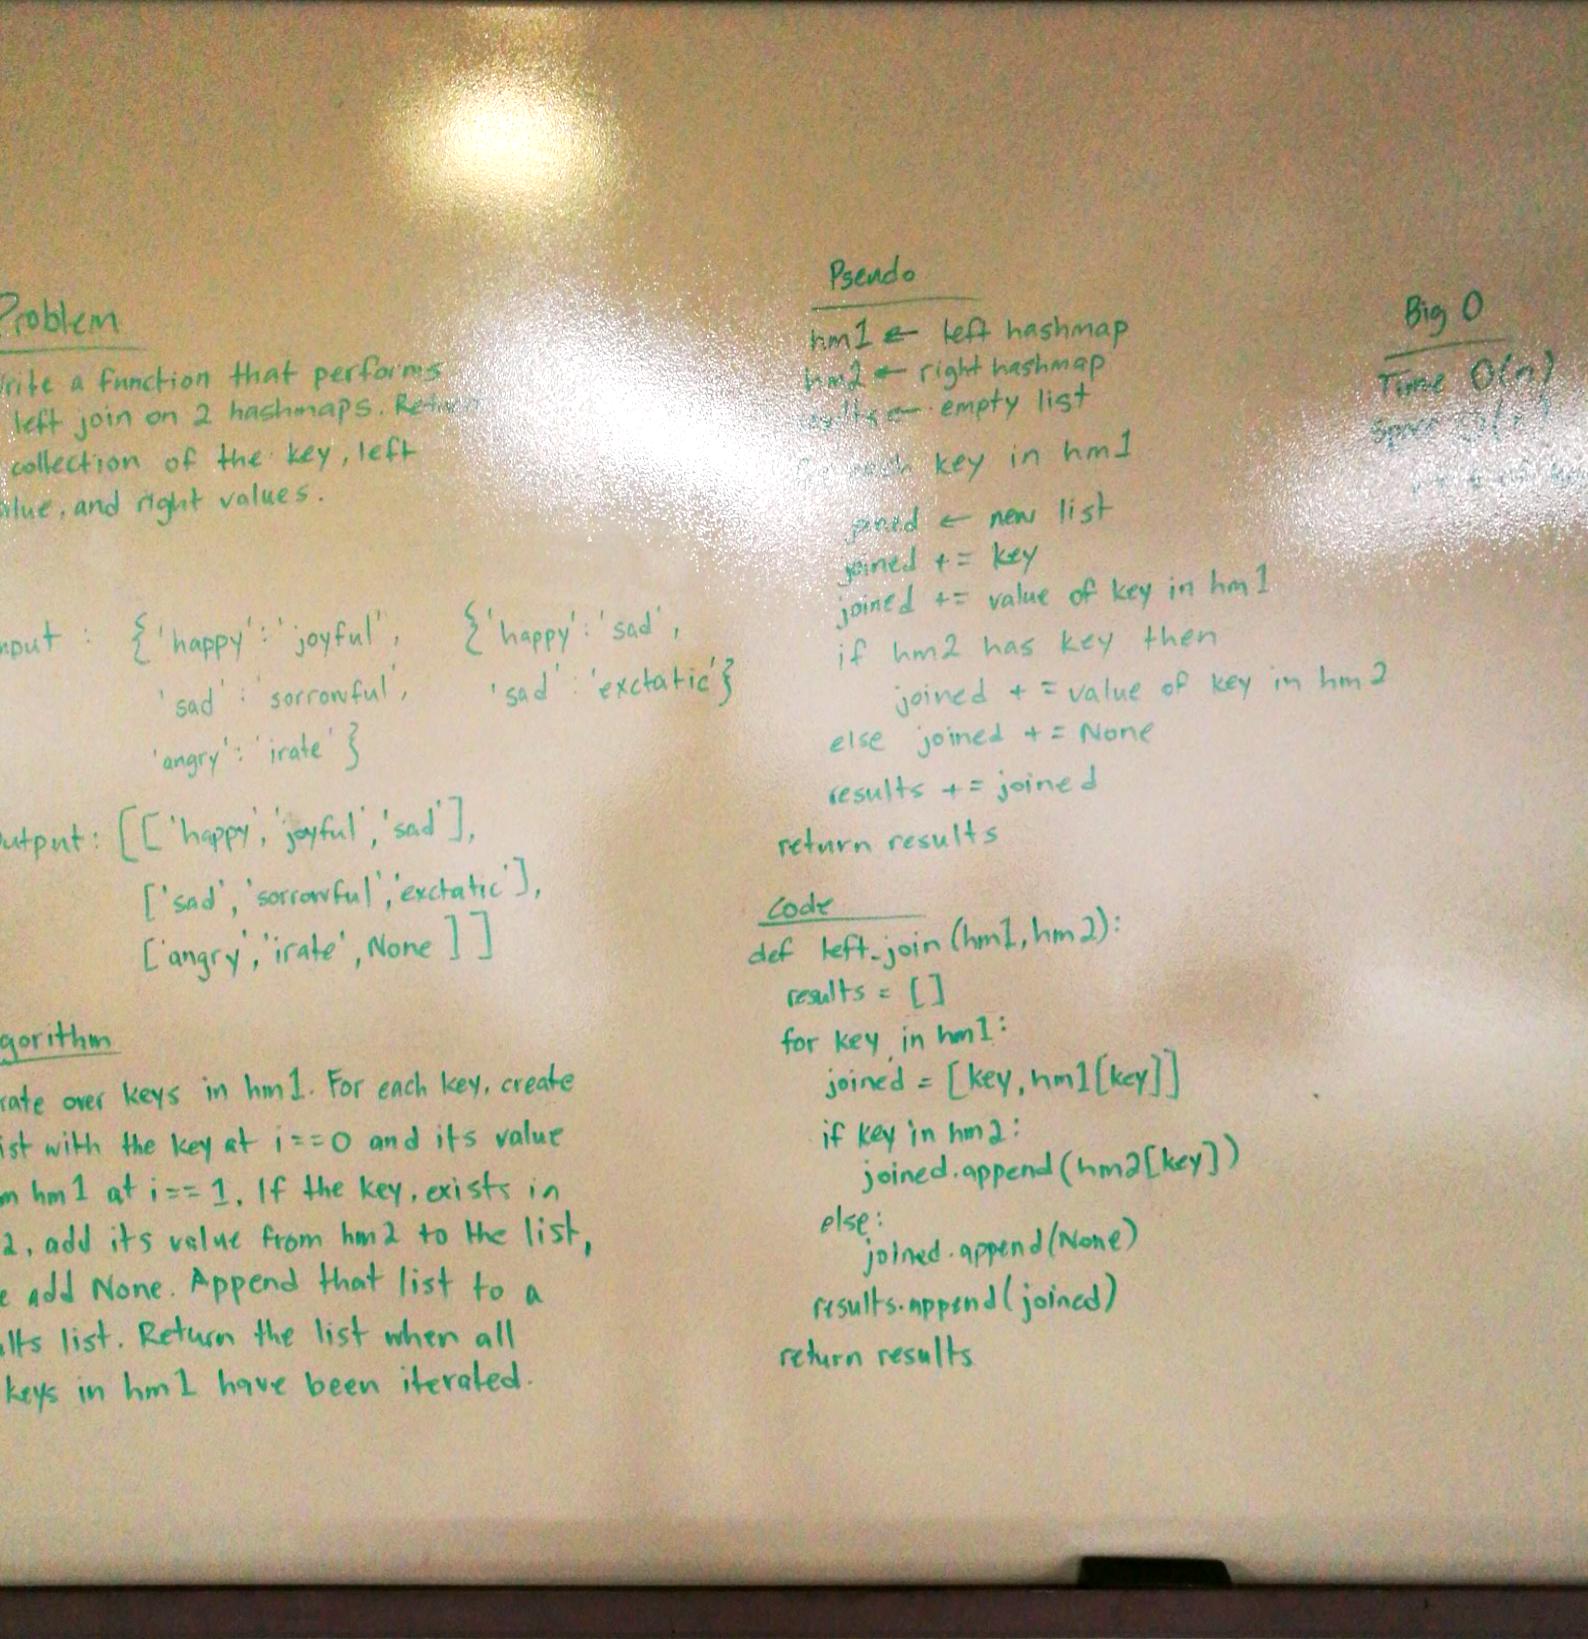 Problem
Write a function that performs
left join on 2 hashmaps. Return
collection of the key, left
value, and right values.
Input : {'happy':'joyful', {'happy':'sad',
'sad':'sorrowful', 'sad':'exctatic'}
'angry':'irate'}
Output: [['happy','joyful','sad'],
['sad','sorrowful','exctatic'],
['angry','irate',None]]
gorithm
rate over keys in hm1. For each key, create
ist with the key at i==0 and its value
m hm1 at i==1. If the key, exists in
2, add its value from hm2 to the list,
e add None. Append that list to a
ults list. Return the list when all
keys in hm1 have been iterated.
Pseudo
hm1 ← left hashmap
hm2 ← right hashmap
results ← empty list
for each key in hm1
joined ← new list
joined += key
joined += value of key in hm1
if hm2 has key then
joined += value of key in hm2
else joined += None
results += joined
return results
Code
def left_join(hm1,hm2):
results = []
for key in hm1:
joined = [key,hm1[key]]
if key in hm2:
joined.append(hm2[key])
else:
joined.append(None)
results.append(joined)
return results
Big O
Time O(n)
Space